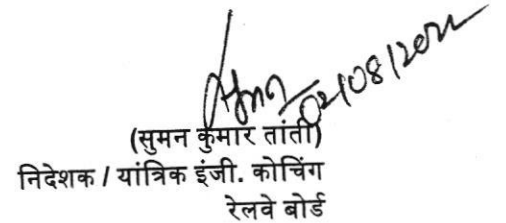 02/08/2022
(सुमन कुमार तांती)
निदेशक / यांत्रिक इंजी. कोचिंग
रेलवे बोर्ड